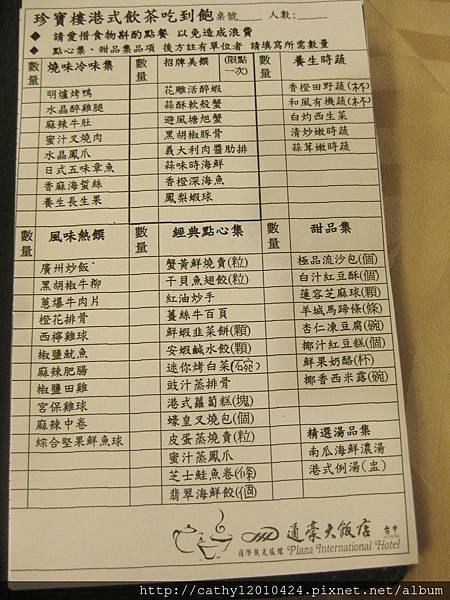 珍寶樓港式飲茶吃到飽 桌號____ 人數:____
◆ 請愛惜食物斟酌點餐 以免造成浪費
◆ 點心集、甜品集品項 後方註有單位者 請填寫所需數量
數量 燒味冷味集
明爐烤鴨
水晶醉雞腿
麻辣牛肚
蜜汁叉燒肉
水晶鳳爪
日式五味章魚
香麻海蜇絲
養生長生果
數量 招牌美饌 (限點一次)
花雕活醉蝦
蒜酥軟殼蟹
避風塘旭蟹
黑胡椒豚骨
義大利肉醬肋排
蒜味時海鮮
香橙深海魚
鳳梨蝦球
數量 養生時蔬
香橙田野蔬(杯)
和風有機蔬(杯)
白灼西生菜
清炒嫩時蔬
蒜茸嫩時蔬
數量 風味熱饌
廣州炒飯
黑胡椒牛柳
蔥爆牛肉片
橙花排骨
西檸雞球
椒鹽魷魚
麻辣肥腸
椒鹽田雞
宮保雞球
麻辣中卷
綜合堅果鮮魚球
數量 經典點心集
蟹黃鮮燒賣(粒)
干貝魚翅餃(粒)
紅油炒手
薑絲牛百頁
鮮蝦韭菜餅(顆)
安蝦鹹水餃(顆)
迷你烤白菜(碗)
豉汁蒸排骨
港式蘿蔔糕(塊)
蠔皇叉燒包(個)
皮蛋蒸燒賣(粒)
蜜汁蒸鳳爪
芝士鮭魚卷(條)
翡翠海鮮餃(個)
數量 甜品集
極品流沙包(個)
白汁紅豆酥(個)
蓮容芝麻球(顆)
羊城馬蹄條(條)
杏仁凍豆腐(碗)
椰汁紅豆糕(個)
鮮果奶酪(杯)
椰香西米露(碗)
精選湯品集
南瓜海鮮濃湯
港式例湯(盅)
通豪大飯店 台中
國際觀光旅館 Plaza International Hotel
http://cathy12010424.pixnet.net/album